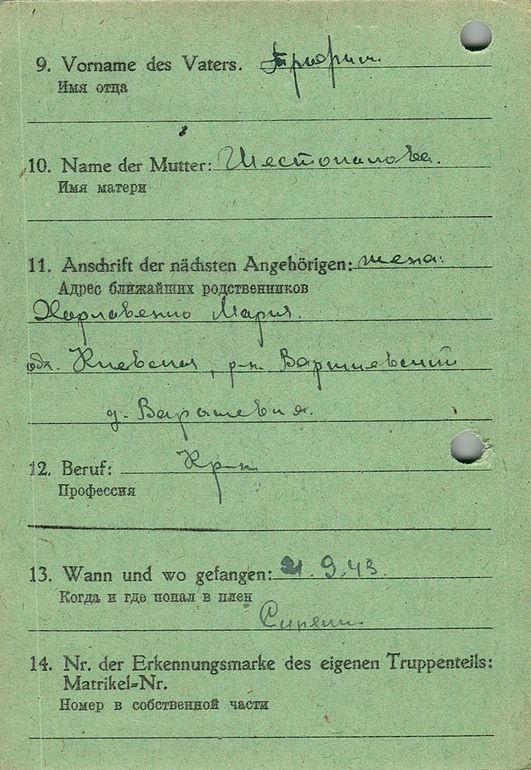 9. Vorname des Vaters. Трофим
Имя отца
10. Name der Mutter: Шестопалова.
Имя матери
11. Anschrift der nächsten Angehörigen: жена:
Адрес ближайших родственников
Мария.
обл. Киевская, р-н.
д.
12. Beruf: Кр-н
Профессия
13. Wann und wo gefangen: 21.9.43
Когда и где попал в плен
14. Nr. der Erkennungsmarke des eigenen Truppenteils:
Matrikel-Nr.
Номер в собственной части